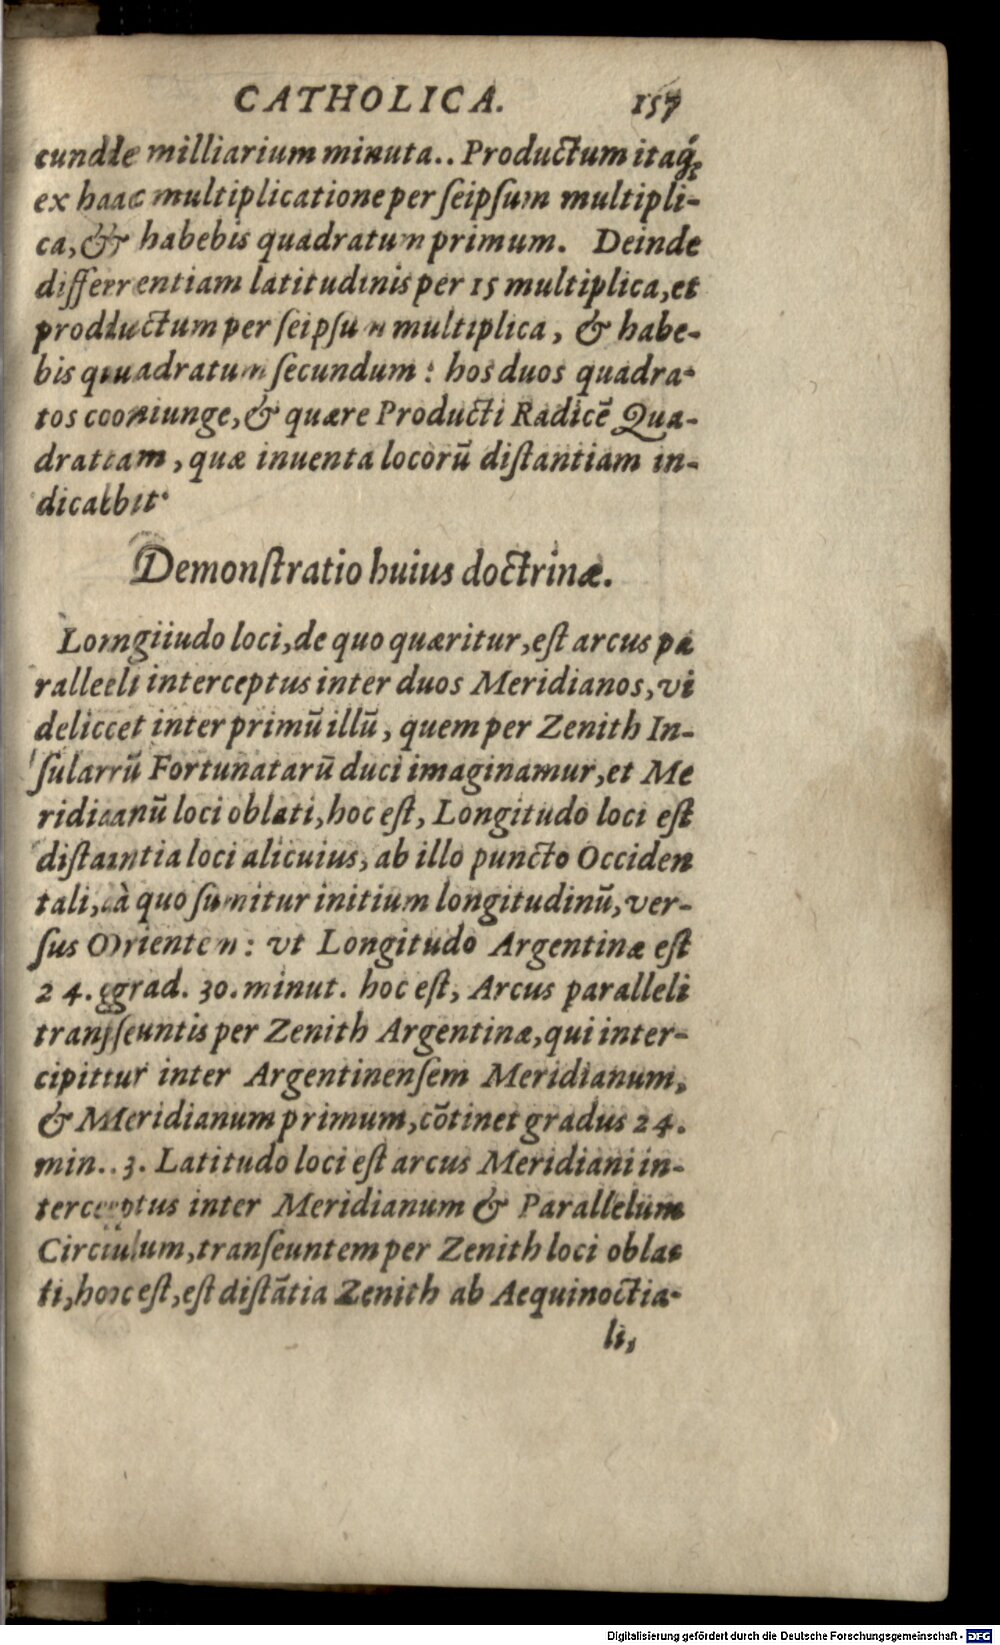 CATHOLICA. 157
cundæ milliarium minuta. Productum itaq́;
ex hac multiplicatione per ſeipſum multipli-
ca, & habebis quadratum primum. Deinde
differentiam latitudinis per 15 multiplica, et
productum per ſeipſum multiplica, & habe-
bis quadratum ſecundum: hos duos quadra-
tos coniunge, & quære Producti Radicẽ Qua-
dratam, quæ inuenta locorũ diſtantiam in-
dicabit.
Demonſtratio huius doctrinæ.
Longiiudo loci, de quo quæritur, eſt arcus pa
ralleli interceptus inter duos Meridianos, vi
delicet inter primũ illũ, quem per Zenith In-
ſularũ Fortunatarũ duci imaginamur, et Me
ridianũ loci oblati, hoc eſt, Longitudo loci eſt
diſtantia loci alicuius, ab illo puncto Occiden
tali, à quo ſumitur initium longitudinũ, ver-
ſus Orientem: vt Longitudo Argentinæ eſt
24. grad. 30. minut. hoc eſt, Arcus paralleli
tranſeuntis per Zenith Argentinæ, qui inter-
cipitur inter Argentinenſem Meridianum,
& Meridianum primum, cõtinet gradus 24.
min. 3. Latitudo loci eſt arcus Meridiani in-
terceptus inter Meridianum & Parallelum
Circulum, tranſeuntem per Zenith loci obla-
ti, hoc eſt, eſt diſtãtia Zenith ab Aequinoctia-
li,
Digitalisierung gefördert durch die Deutsche Forschungsgemeinschaft - DFG